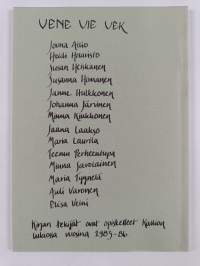 VENE VIE VEK
Joona Aisio
Heidi Hautsio
Susan Heikkanen
Susanna Homanen
Janne Hulkkonen
Johanna Järvinen
Minna Kiukkonen
Jaana Laakso
Maria Laurila
Teemu Perheentupa
Minna Savolainen
Maria Tyynelä
Auli Varonen
Elisa Veini
Kirjan tekijät ovat opiskelleet Kallion
lukiossa vuosina 1985-86.